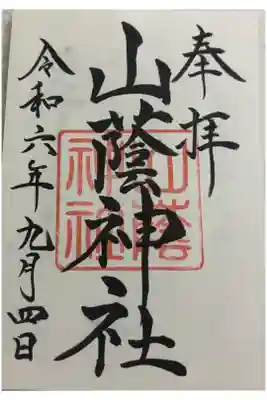 奉拝
山蔭神社
山蔭
神社
令和六年九月四日